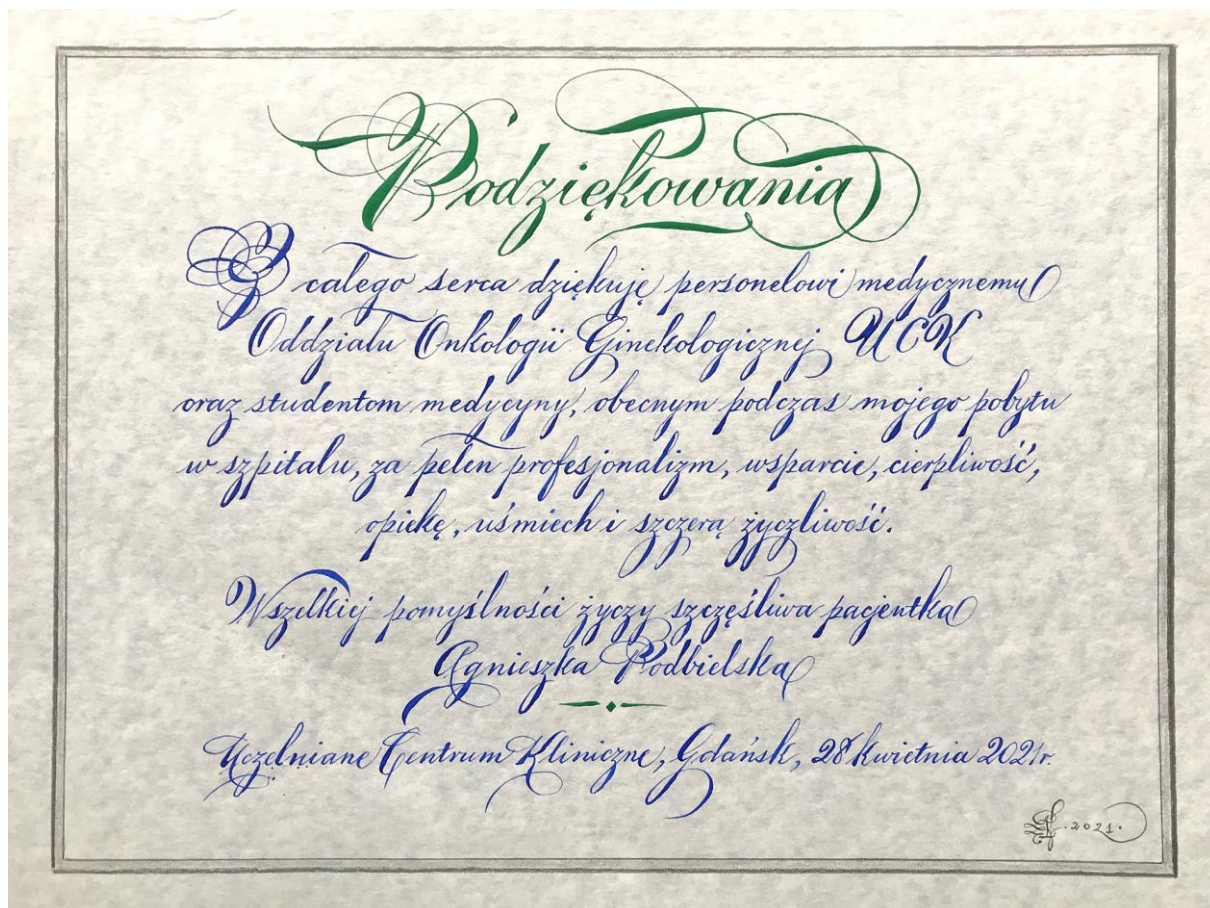 Podziękowania
Z całego serca dziękuję personelowi medycznemu
Oddziału Onkologii Ginekologicznej UCK
oraz studentom medycyny, obecnym podczas mojego pobytu
w szpitalu, za pełen profesjonalizm, wsparcie, cierpliwość,
opiekę, uśmiech i szczerą życzliwość.
Wszelkiej pomyślności życzy szczęśliwa pacjentka
Agnieszka Podbielska
Uczelniane Centrum Kliniczne, Gdańsk, 28 kwietnia 2021r.
.2021.